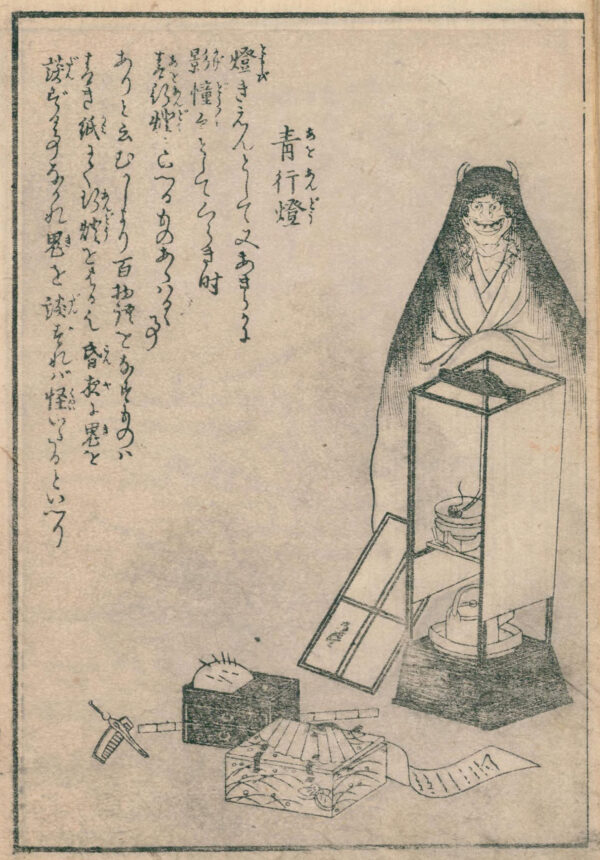 青行燈
燈きえんとして又あきらかに
影憧々としてくらき時
青行燈といへるものあらはるゝ事
ありと云むかしより百物語をなすものは
青き紙にて行燈をはる也昏夜に鬼を
談ずる事なかれ鬼を談ずれば怪いたるといへり